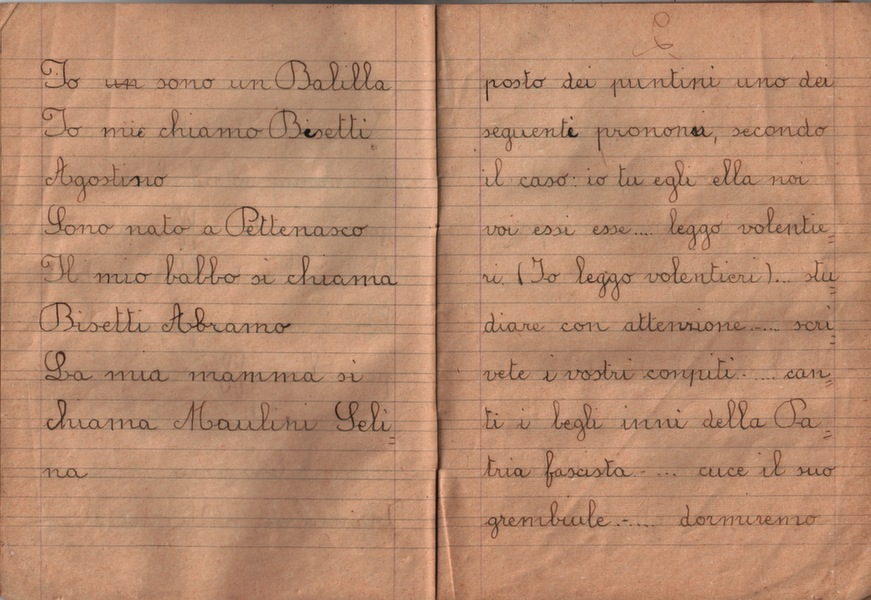 Io un sono un Balilla
Io mi chiamo Bisetti
Agostino
Sono nato a Pettenasco
Il mio babbo si chiama
Bisetti Abramo
La mia mamma si
chiama Maulini Seli=
na
posto dei puntini uno dei
seguenti pronomi, secondo
il caso: io tu egli ella noi
voi essi esse.... leggo volentie=
ri. (Io leggo volentieri)... stu=
diare con attenzione..... scri=
vete i vostri conpiti..... can=
ti i begli inni della Pa=
tria fascista.- ... cuce il suo
grembiule.-.... dormiremo